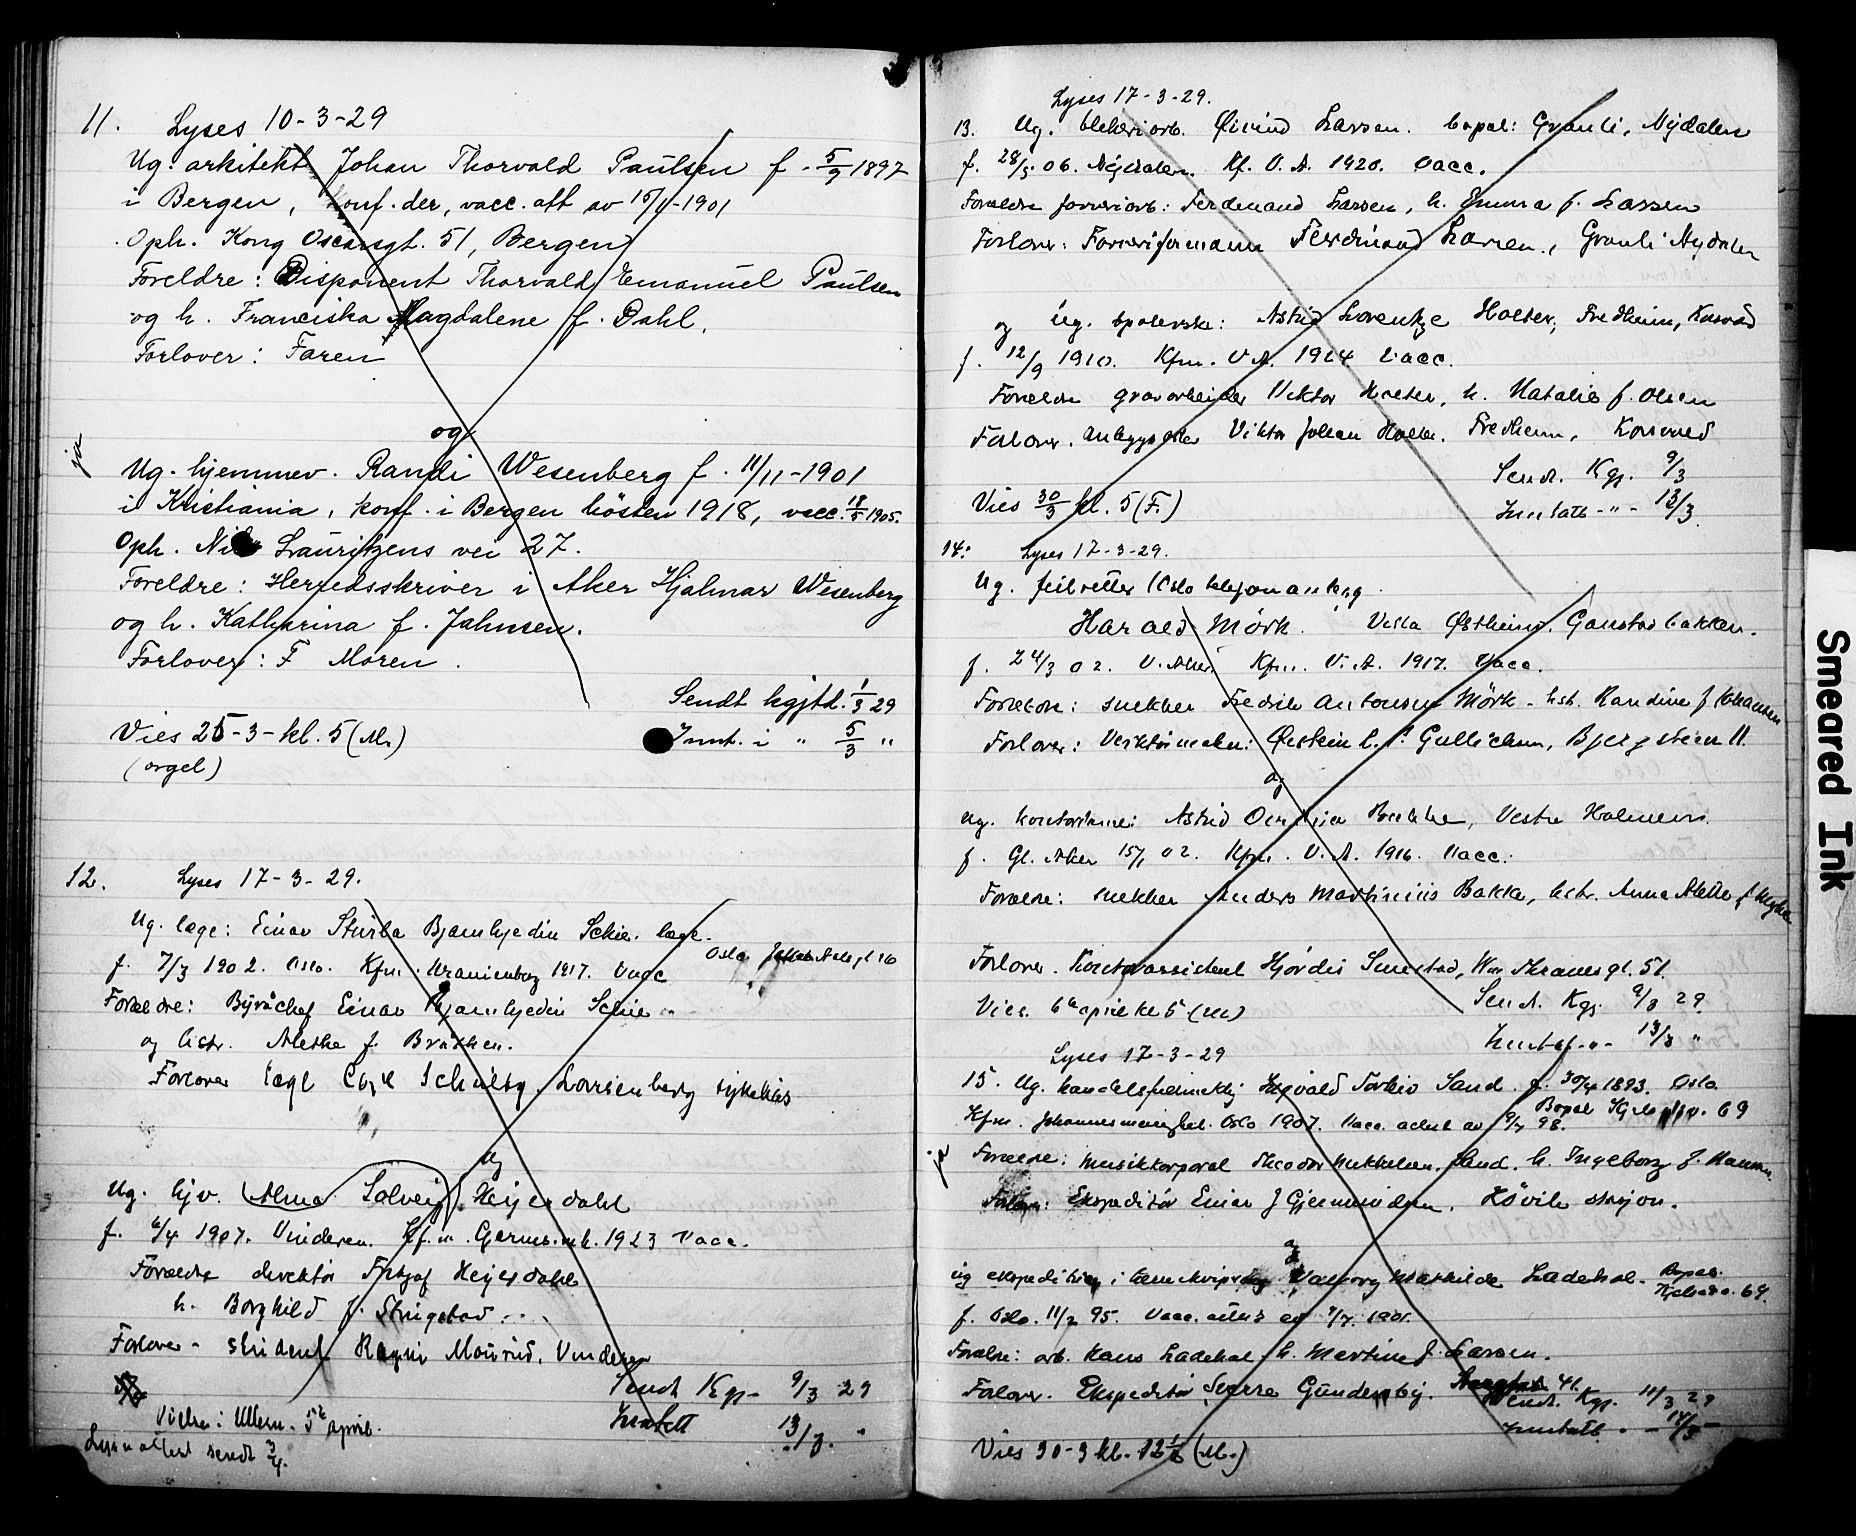 11. Lyses 10-3-29
Ug. arkitekt Johan Thorvald Paulsen f. 5/9 1897
i Bergen, konf. der, vacc. att av 15/4-1901
Oph. Kong Oscarsgt. 51, Bergen
Foreldre: Disponent Thorvald Emanuel Paulsen
og h. Franciska Magdalene f. Dahl.
Forlover: Faren
og
ja
Ug. hjemmev. Randi Wesenberg f. 11/11-1901
i Kristiania, konf. i Bergen hösten 1918, vacc. 18/5 1905.
Oph. Nils Lauritzens vei 27.
Foreldre: Herredsskriver i Aker Hjalmar Wesenberg
og h. Katharina f. Jahnsen.
Forlover: F Moren.
Sendt kgjtd. 1/3 29
Vies 25-3-kl. 5 (M.)
Innt. i " 5/3 "
(orgel)
12. Lyses 17-3-29.
Ug. læge: Einar Sturla Bjarnhjedin Schie. læge.
f. 7/3 1902. Oslo. Kfm. Uranienborg 1917. Vacc
Forældre: Byråchef Einar Bjarnhjedin Schie
og hstr. Alethe f. Bratthen.
Forlover læge Carl Schultz, Lovisenberg sykehus
og
Ug. hjv. (Alma Solveig) Heijerdahl
f. 6/4 1907. Vinderen. Kfm. 1923 Vacc.
Forældre direktör Fritjof Heijerdahl
h. Borghild f. Stingstad
Forlover - student Ragni Mourud, Vinderen
Sendt Kgj. 9/3 29
Inntatt 13/3. "
Vielse i Ullern. 5te april.
Lysn. attest sendt 3/4.
Lyses 17-3-29.
13. Ug. blekeriarb. Øivind Larsen. bopæl: Granli, Nydalen
f. 28/5 06. Nydalen. Kf. V. A. 1920. Vacc.
Forældre farveriarb: Ferdinand Larsen, h. Emma f. Larsen
Forlover: Farveriformann Ferdinand Larsen, Granli Nydalen
og ug. spolerske: Astrid Lorentze Holter, Fredheim, Korsvoll
f. 12/9 1910. Kfm. V A. 1924 Vacc.
Forældre gravarbeider Viktor Holter, h. Natalie f. Olsen
Forlover. Viktor Johan Holter. Fredheim, Korsvoll
Sendt. Kgj. 9/3
Vies 30/3 kl. 5 (F.)
Inntatt - " - 13/3
14: Lyses 17-3-29.
Ug. feilretter (Oslo telefonanlæg
Harald Mörk. Villa Østheim. Gaustadbakken.
f. 24/3 02. V. Aker. Kfm. V. A. 1917. Vacc.
Forældre: snekker Fredrik Antonsen Mörk - hst. Randine f. Johansen
Forlover: Verktöimaker: Øistein Gullichsen, Bjergstien 11.
og
ug. kontordame: Astrid Bakke, Vestre Holmen.
f. Gl. Aker 15/1 02. Kfm. V. A. 1916. Vacc.
Forældre: snekker Anders Martinius Bakke, hstr. Anna Alette f.
Forlover. Kontorassistent Hjördis Smestad, Wm Thranesgt. 51.
Vies. 6te april kl 5 (M)
Sendt. Kgj. 9/3 29
Inntat - " - 13/3 "
Lyses 17-3-29
15. Ug. handelsfuldmektig Ingvald Torleiv Sand. f. 30/4 1893. Oslo
Kfm. Johannes menighet. Oslo 1907. Vacc. attest av 9/7 98. Bopæl 69
ja
Forældre: musikkorporal Theodor Mikkelsen Sand. h. Ingeborg f. Hansen
Forlover: Ekspeditör Einar J Gjermundsen. Hövik stasjon.
og
ug ekspeditrise i Valborg Mathilde Ladehol. Bopæl 69.
f. Oslo. 11/2 95. Vacc. attest av 4/7. 1901.
Forældre: arb. Hans Ladehol h. Martine f. Larsen.
Forlover. Ekspeditör Sverre Gundersby. 41.
Sendt. Kgj. 11/3 29
Inntatt. - 14/3 -
Vies 30-3 kl. 12½ (M.)
Smeared Ink